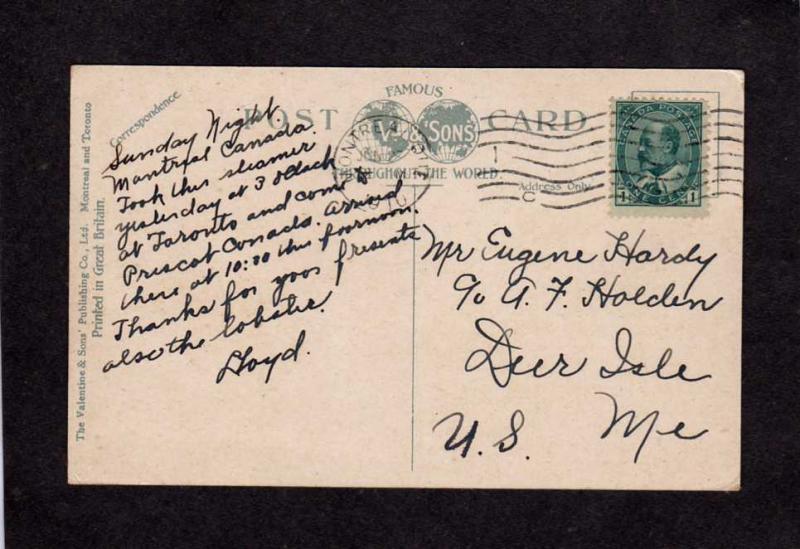 FAMOUS
POST CARD
V. & SONS
THROUGHOUT THE WORLD.
Correspondence.
Address Only.
MONTREAL
CANADA POSTAGE
ONE CENT
1 1
The Valentine & Sons' Publishing Co., Ltd. Montreal and Toronto
Printed in Great Britain.
Sunday Night.
Mantreal Canada.
Took this steamer
yesterday at 3 oClock
at Toronto and come to
Prescot Canada. Arrived
here at 10:20 this foornoon.
Thanks for yoor presents
also the lobster.
Lloyd.
Mr Eugene Hardy
c/o A. F. Holden
Deer Isle
U.S. Me